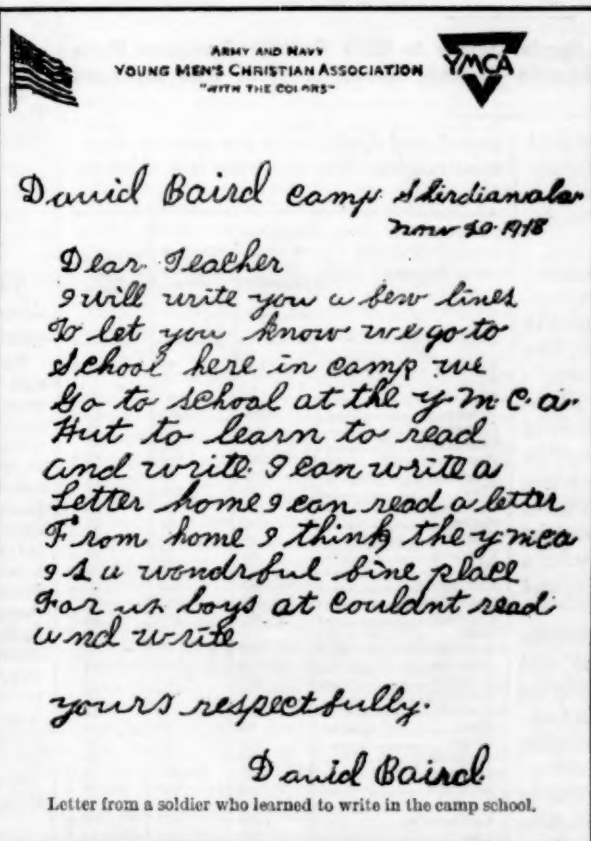 ARMY AND NAVY
YOUNG MEN'S CHRISTIAN ASSOCIATION
"WITH THE COLORS"
YMCA
David Baird Camp
Nov 20 1918
Dear Teacher
I will write you a bew lines
To let you know we go to
School here in camp we
Go to school at the y. m. c. a.
Hut to learn to read
and write. I can write a
Letter home I can read a letter
From home I think the ymca
Is a wondrbul bine place
For us boys at couldnt read
and write
yours respectbully.
David Baird
Letter from a soldier who learned to write in the camp school.